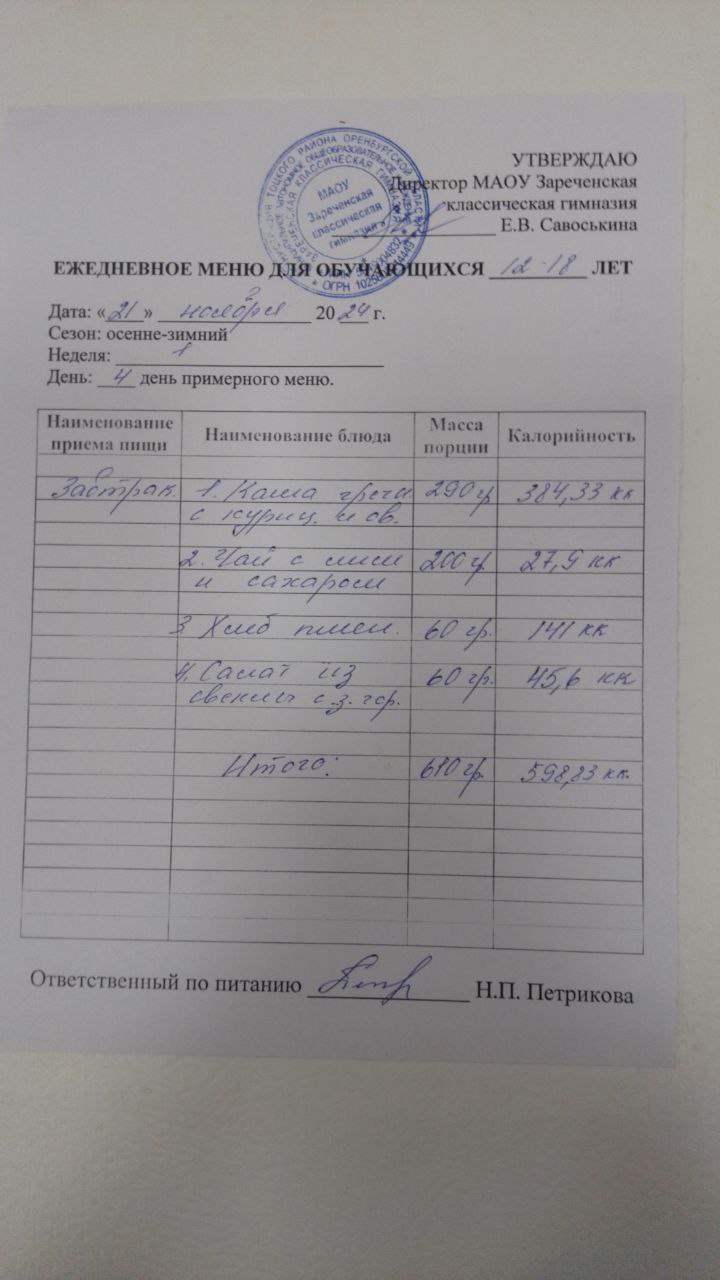 УТВЕРЖДАЮ
Директор МАОУ Зареченская
классическая гимназия
Е.В. Савоськина
МАОУ
Зареченская
классическая
гимназия
ЕЖЕДНЕВНОЕ МЕНЮ ДЛЯ ОБУЧАЮЩИХСЯ 12-18 ЛЕТ
Дата: «21» ноября 2024 г.
Сезон: осенне-зимний
Неделя: 1
День: 4 день примерного меню.
Наименование приема пищи Наименование блюда Масса порции Калорийность
Завтрак. 1. Каша гречн 290 гр 384,33 кк
с куриц. и св.
2. Чай с лим 200 гр. 27,9 кк
и сахаром
3. Хлеб пшен. 60 гр. 141 кк
4. Салат из 60 гр. 45,6 кк
свеклы с з. гор.
Итого: 610 гр. 598,83 кк.
Ответственный по питанию Н.П. Петрикова